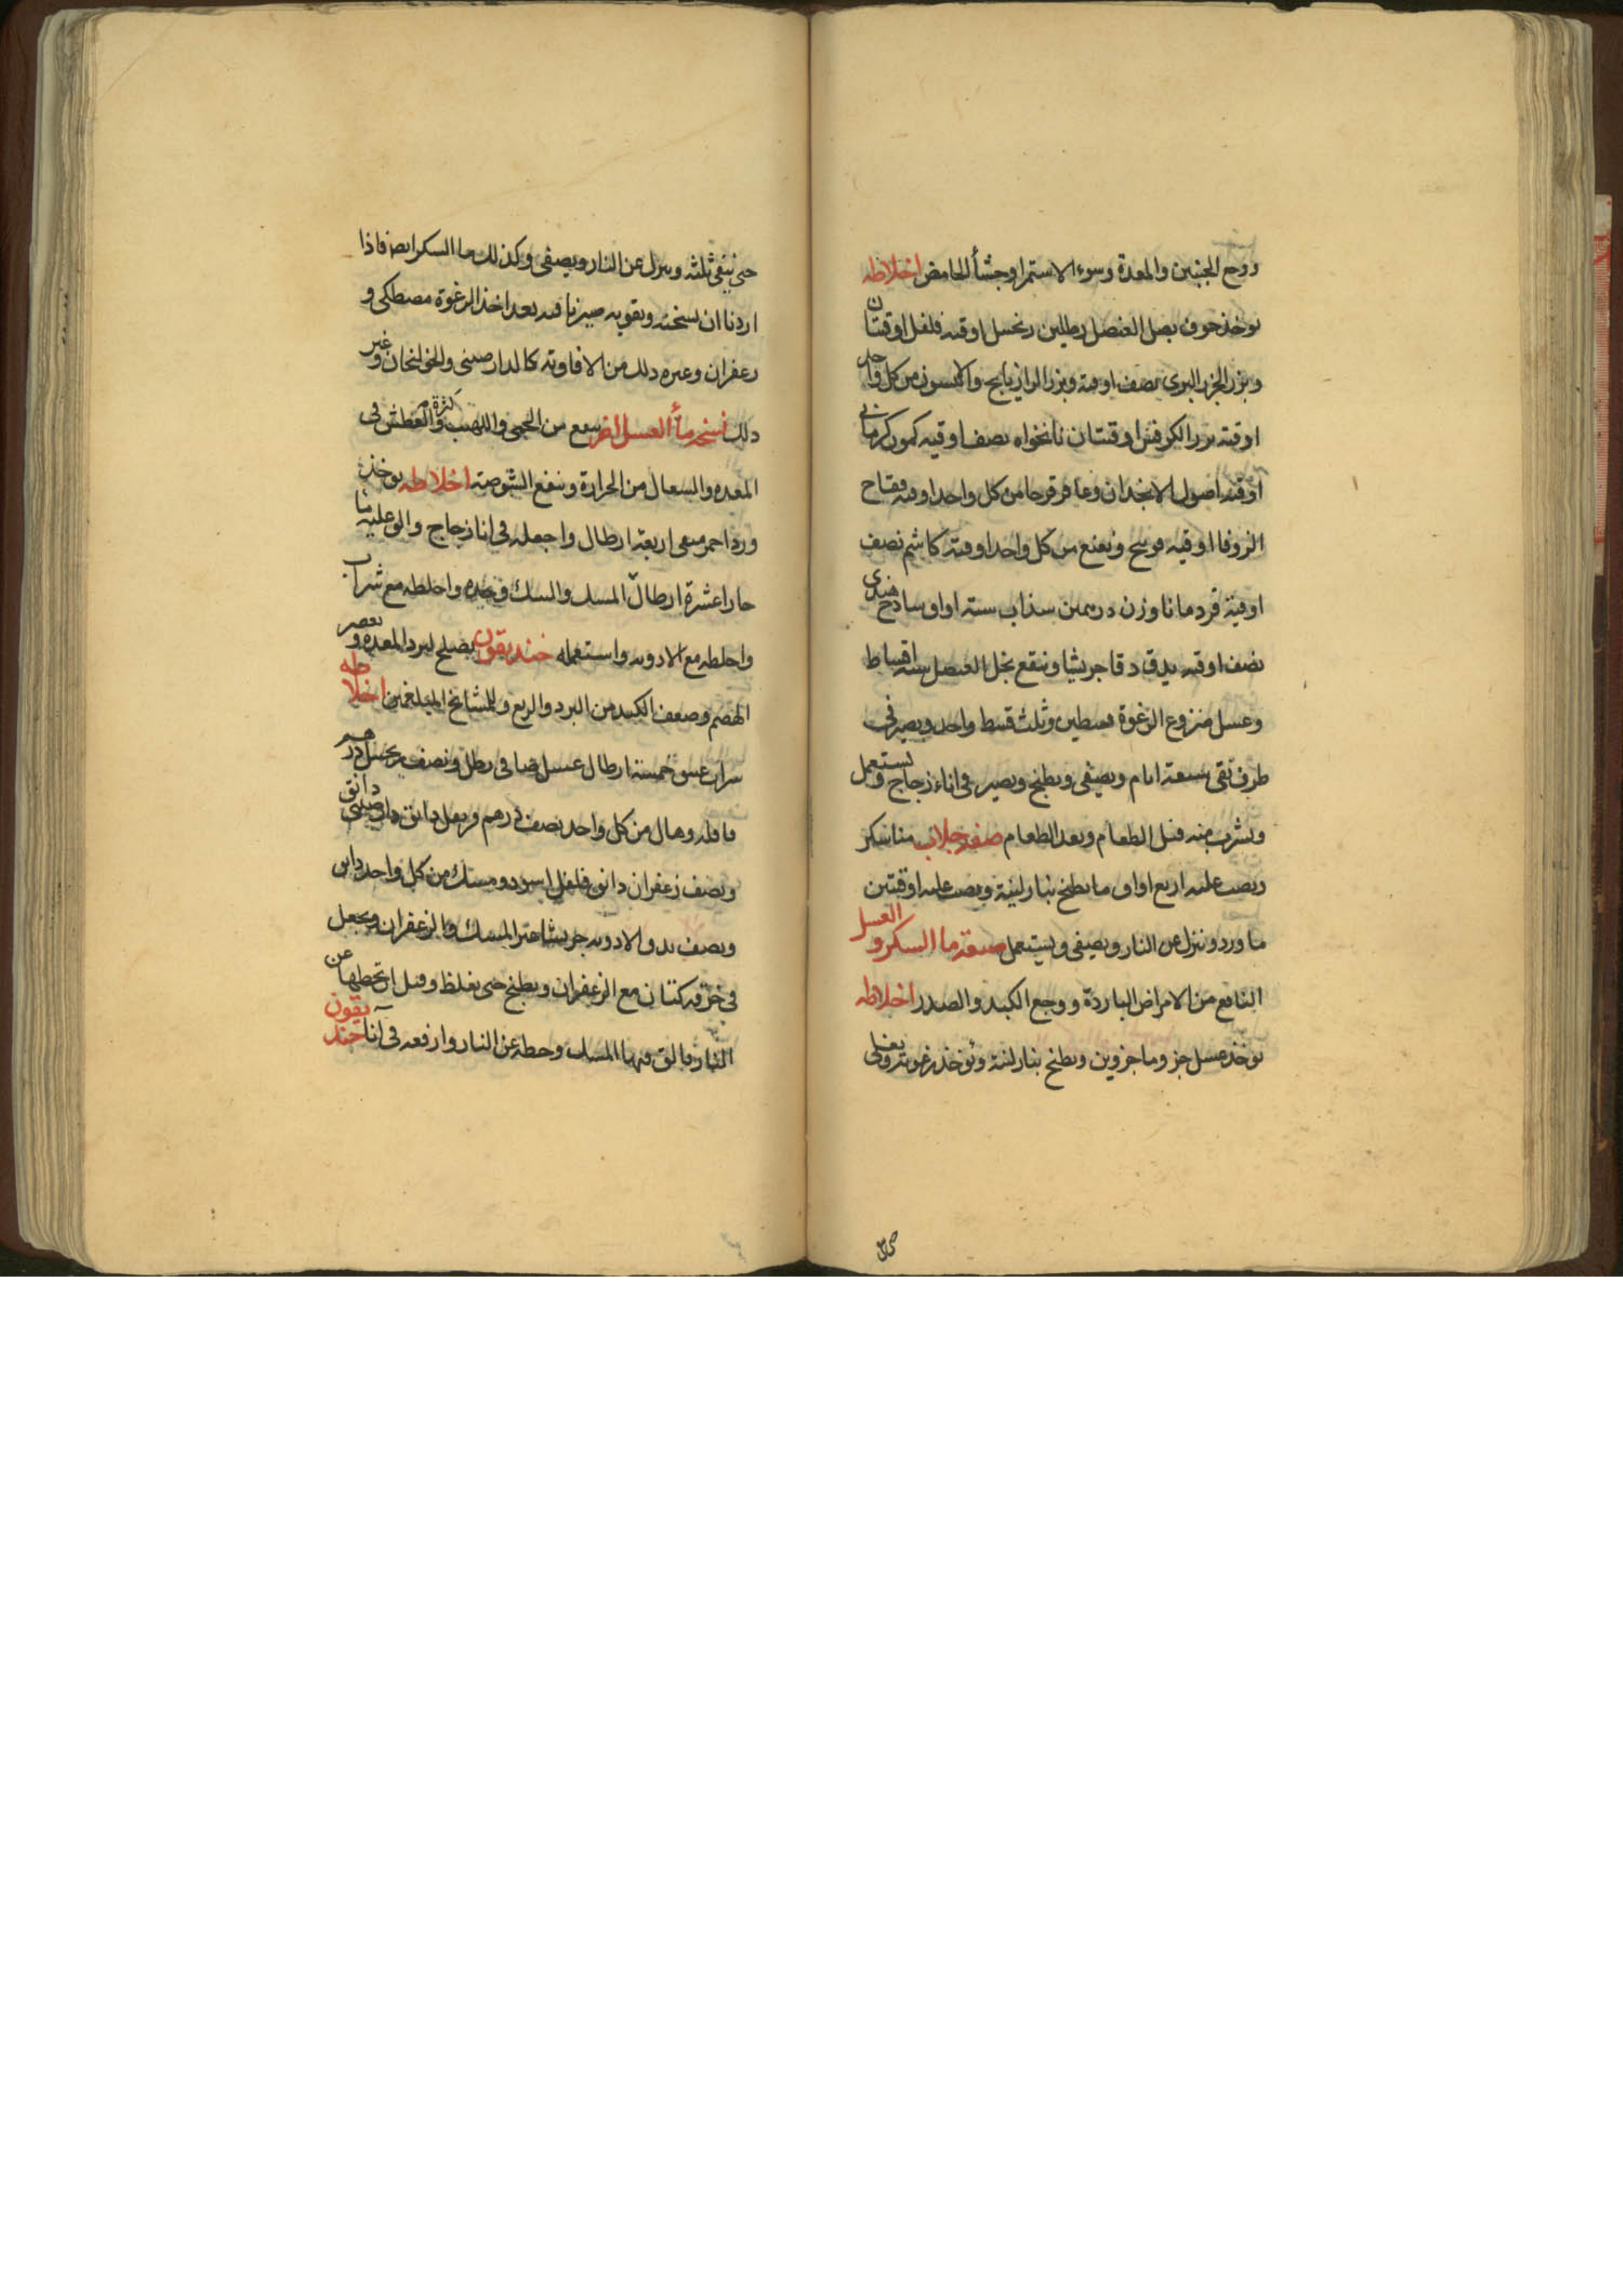 ووجع الجنبين والمعدة وسوء الاستمرا وجشأ الحامض اخلاطه
يوخذ جوف بصل العنصل رطلين زنجبيل اوقيه فلفل اوقيتان
وبزر الجزر البرى نصف اوقيه وبزر الرازيانج والانيسون من كل واحد
اوقيه بزر الكرفس اوقيتان نانخواه نصف اوقيه كمون كرمانى
اوقيه اصول الانجدان وعاقرقرحا من كل واحد اوقيه فقاح
الزوفا اوقيه فوتنج ونعنع من كل واحد اوقيه كاشم نصف
اوقية قردمانا وزن درهمين سذاب ستة اواق ساذج هندى
نصف اوقيه يدق دقا جريشا وينقع بخل العنصل ستة اقساط
وعسل منزوع الرغوة قسطين وثلث قسط واحد ويصير فى
ظرف نقى سبعة ايام ويصفى ويطبخ ويصير فى اناء زجاج ويستعمل
ويشرب منه قبل الطعام وبعد الطعام صفة جلاب منا سكر
ويصب عليه اربع اواق ما يطبخ بنار لينة ويصب عليه اوقيتين
ما ورد وينزل عن النار ويصفى ويستعمل صفة ما السكر و العسل
النافع من الامراض الباردة ووجع الكبد والصدر اخلاطه
يوخذ عسل جز وما جزوين ويطبخ بنار لينة وتوخذ رغوته ويغلى
حتى يبقى ثلثه وينزل عن النار ويصفى وكذلك ما السكر ايضا فاذا
اردنا ان نسخنه ونقويه صيرنا فيه بعد اخذ الرغوة مصطكى و
زعفران وغيره ذلك من الافاويه كالدارصينى والخولنجان وغير
ذلك نسخه مأ العسل اخر ينفع من الحمى واللهيب وكثرة العطش فى
المعده والسعال من الحرارة وينفع الشوصة اخلاطه يوخذ
ورد احمر منقى اربعة ارطال واجعله فى انا زجاج والق عليه ما
حارا عشرة ارطال المسك والسك وحده واخلطه مع شراب
واخلطه مع الادويه واستعمله خنديقون يصلح لبرد المعده و
الهضم وضعف الكبد من البرد والريع وللمشايخ المبلغمين اخلاطه
شراب عتيق خمسة ارطال عسل صافى رطل ونصف زنجبيل درهم
قاقله وهال من كل واحد نصف درهم قرنفل دانق دارصينى دانق
ونصف زعفران دانق فلفل اسود ومسك من كل واحد دانق
ونصف يدق الادويه جريشا غير المسك والزعفران ويجعل
فى خرقه كتان مع الزعفران ويطبخ حتى يغلظ وقبل ان تحطها عن
النار فالق فيها المسك وحطه عن النار وارفعه فى انا خنديقون